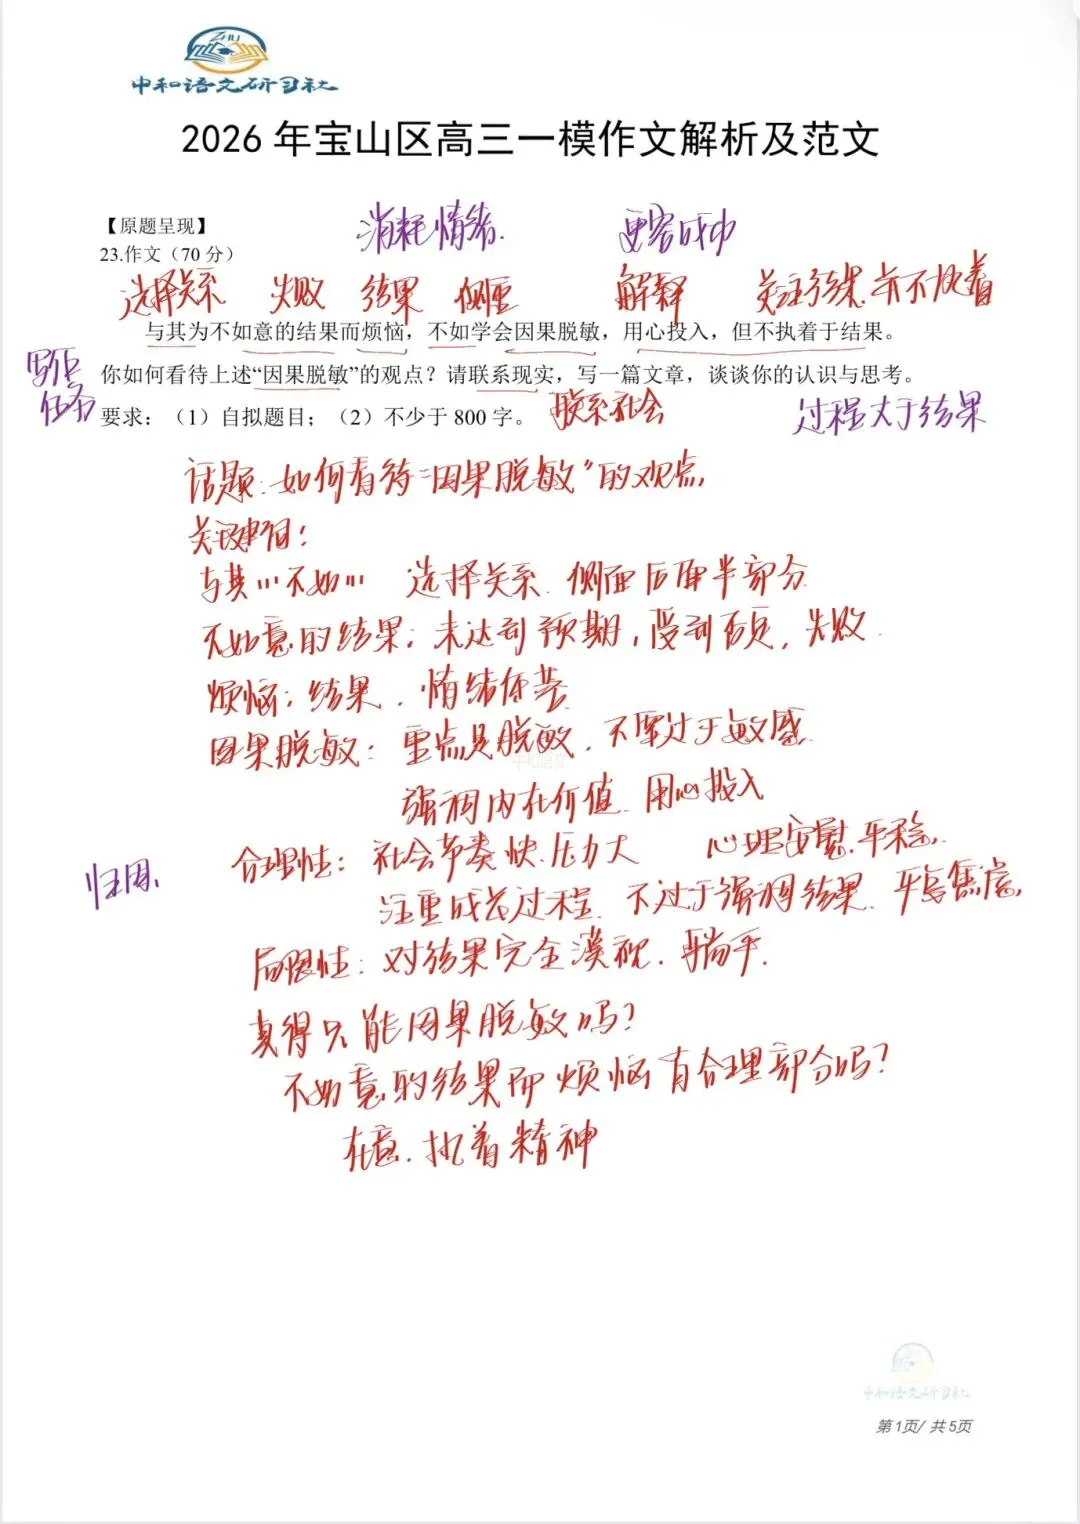 ZHU
中和语文研习社
2026年宝山区高三一模作文解析及范文
【原题呈现】
消耗情绪. 更容成功
23.作文（70分）
选择关系 失败 结果 侧重 解释 关注结果并不执着
与其为不如意的结果而烦恼，不如学会因果脱敏，用心投入，但不执着于结果。
写作
任务
你如何看待上述“因果脱敏”的观点？请联系现实，写一篇文章，谈谈你的认识与思考。
要求：（1）自拟题目；（2）不少于800字。
联系社会 过程大于结果
话题：如何看待“因果脱敏”的观点，
关键词：
与其…不如… 选择关系. 侧重后面半部分
不如意的结果：未达到预期，受到否定，失败.
烦恼：结果. 情绪体差
因果脱敏：重点是脱敏，不要过于敏感
强调内在价值 用心投入
归因.
合理性：社会节奏快.压力大 心理安慰.平稳.
注重成长过程. 不过于强调结果. 平息焦虑,
局限性：对结果完全漠视. 躺平.
真得只能因果脱敏吗？
不如意的结果而烦恼有合理部分吗？
在意. 执着精神
中和语文研习社
第1页/ 共5页